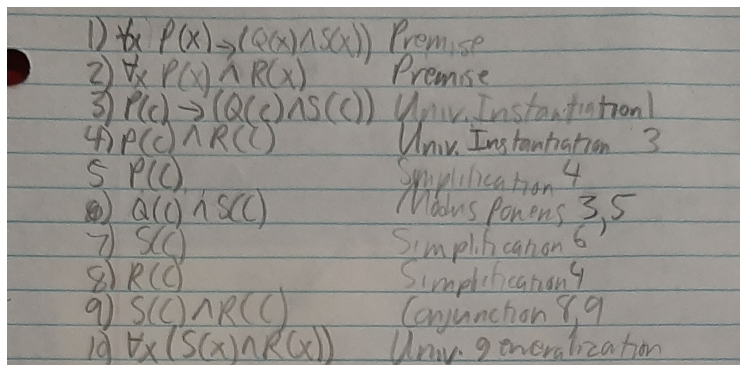 1) ∀x P(x)→(Q(x)∧S(x)) Premise
2) ∀x P(x)∧R(x) Premise
3) P(c)→(Q(c)∧S(c)) Univ. Instantiation 1
4) P(c)∧R(c) Univ. Instantiation 3
5 P(c) Simplification 4
6) Q(c)∧S(c) Modus Ponens 3,5
7) S(c) Simplification 6
8) R(c) Simplification 4
9) S(c)∧R(c) Conjunction 8,9
10 ∀x(S(x)∧R(x)) Univ. generalization